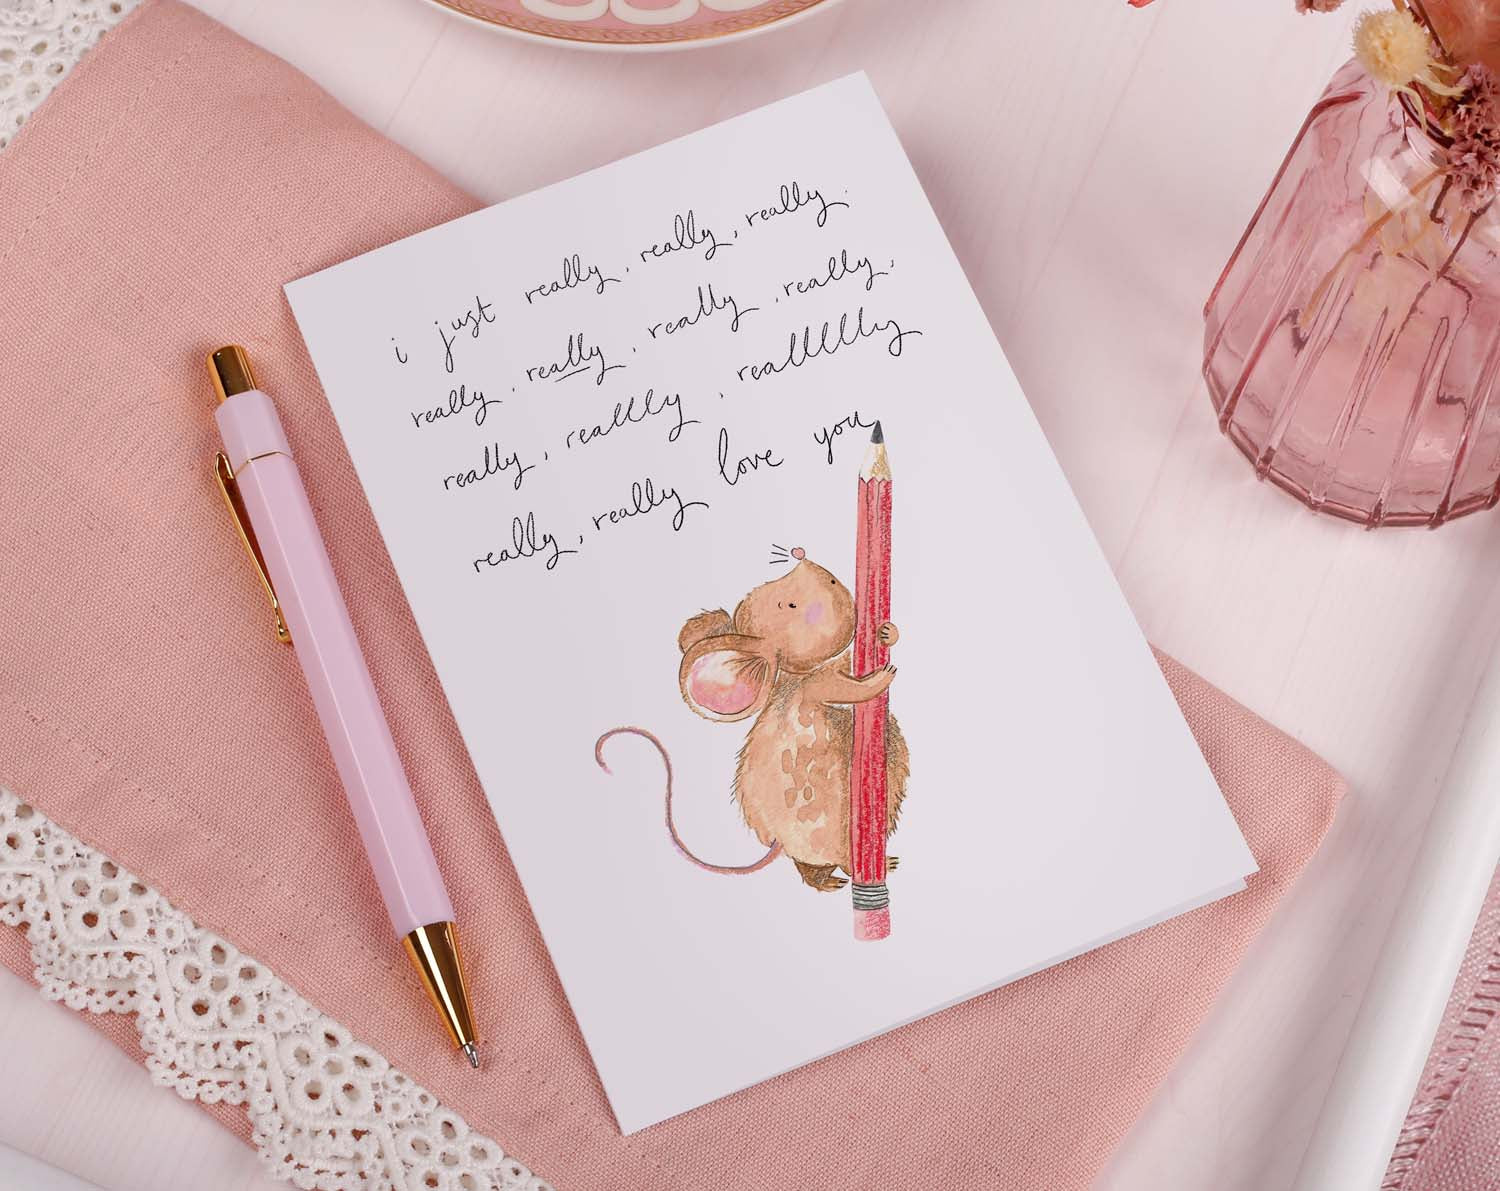 i just really, really, really.
really, really, really, really,
really, reallly, realllllly
really, really love you